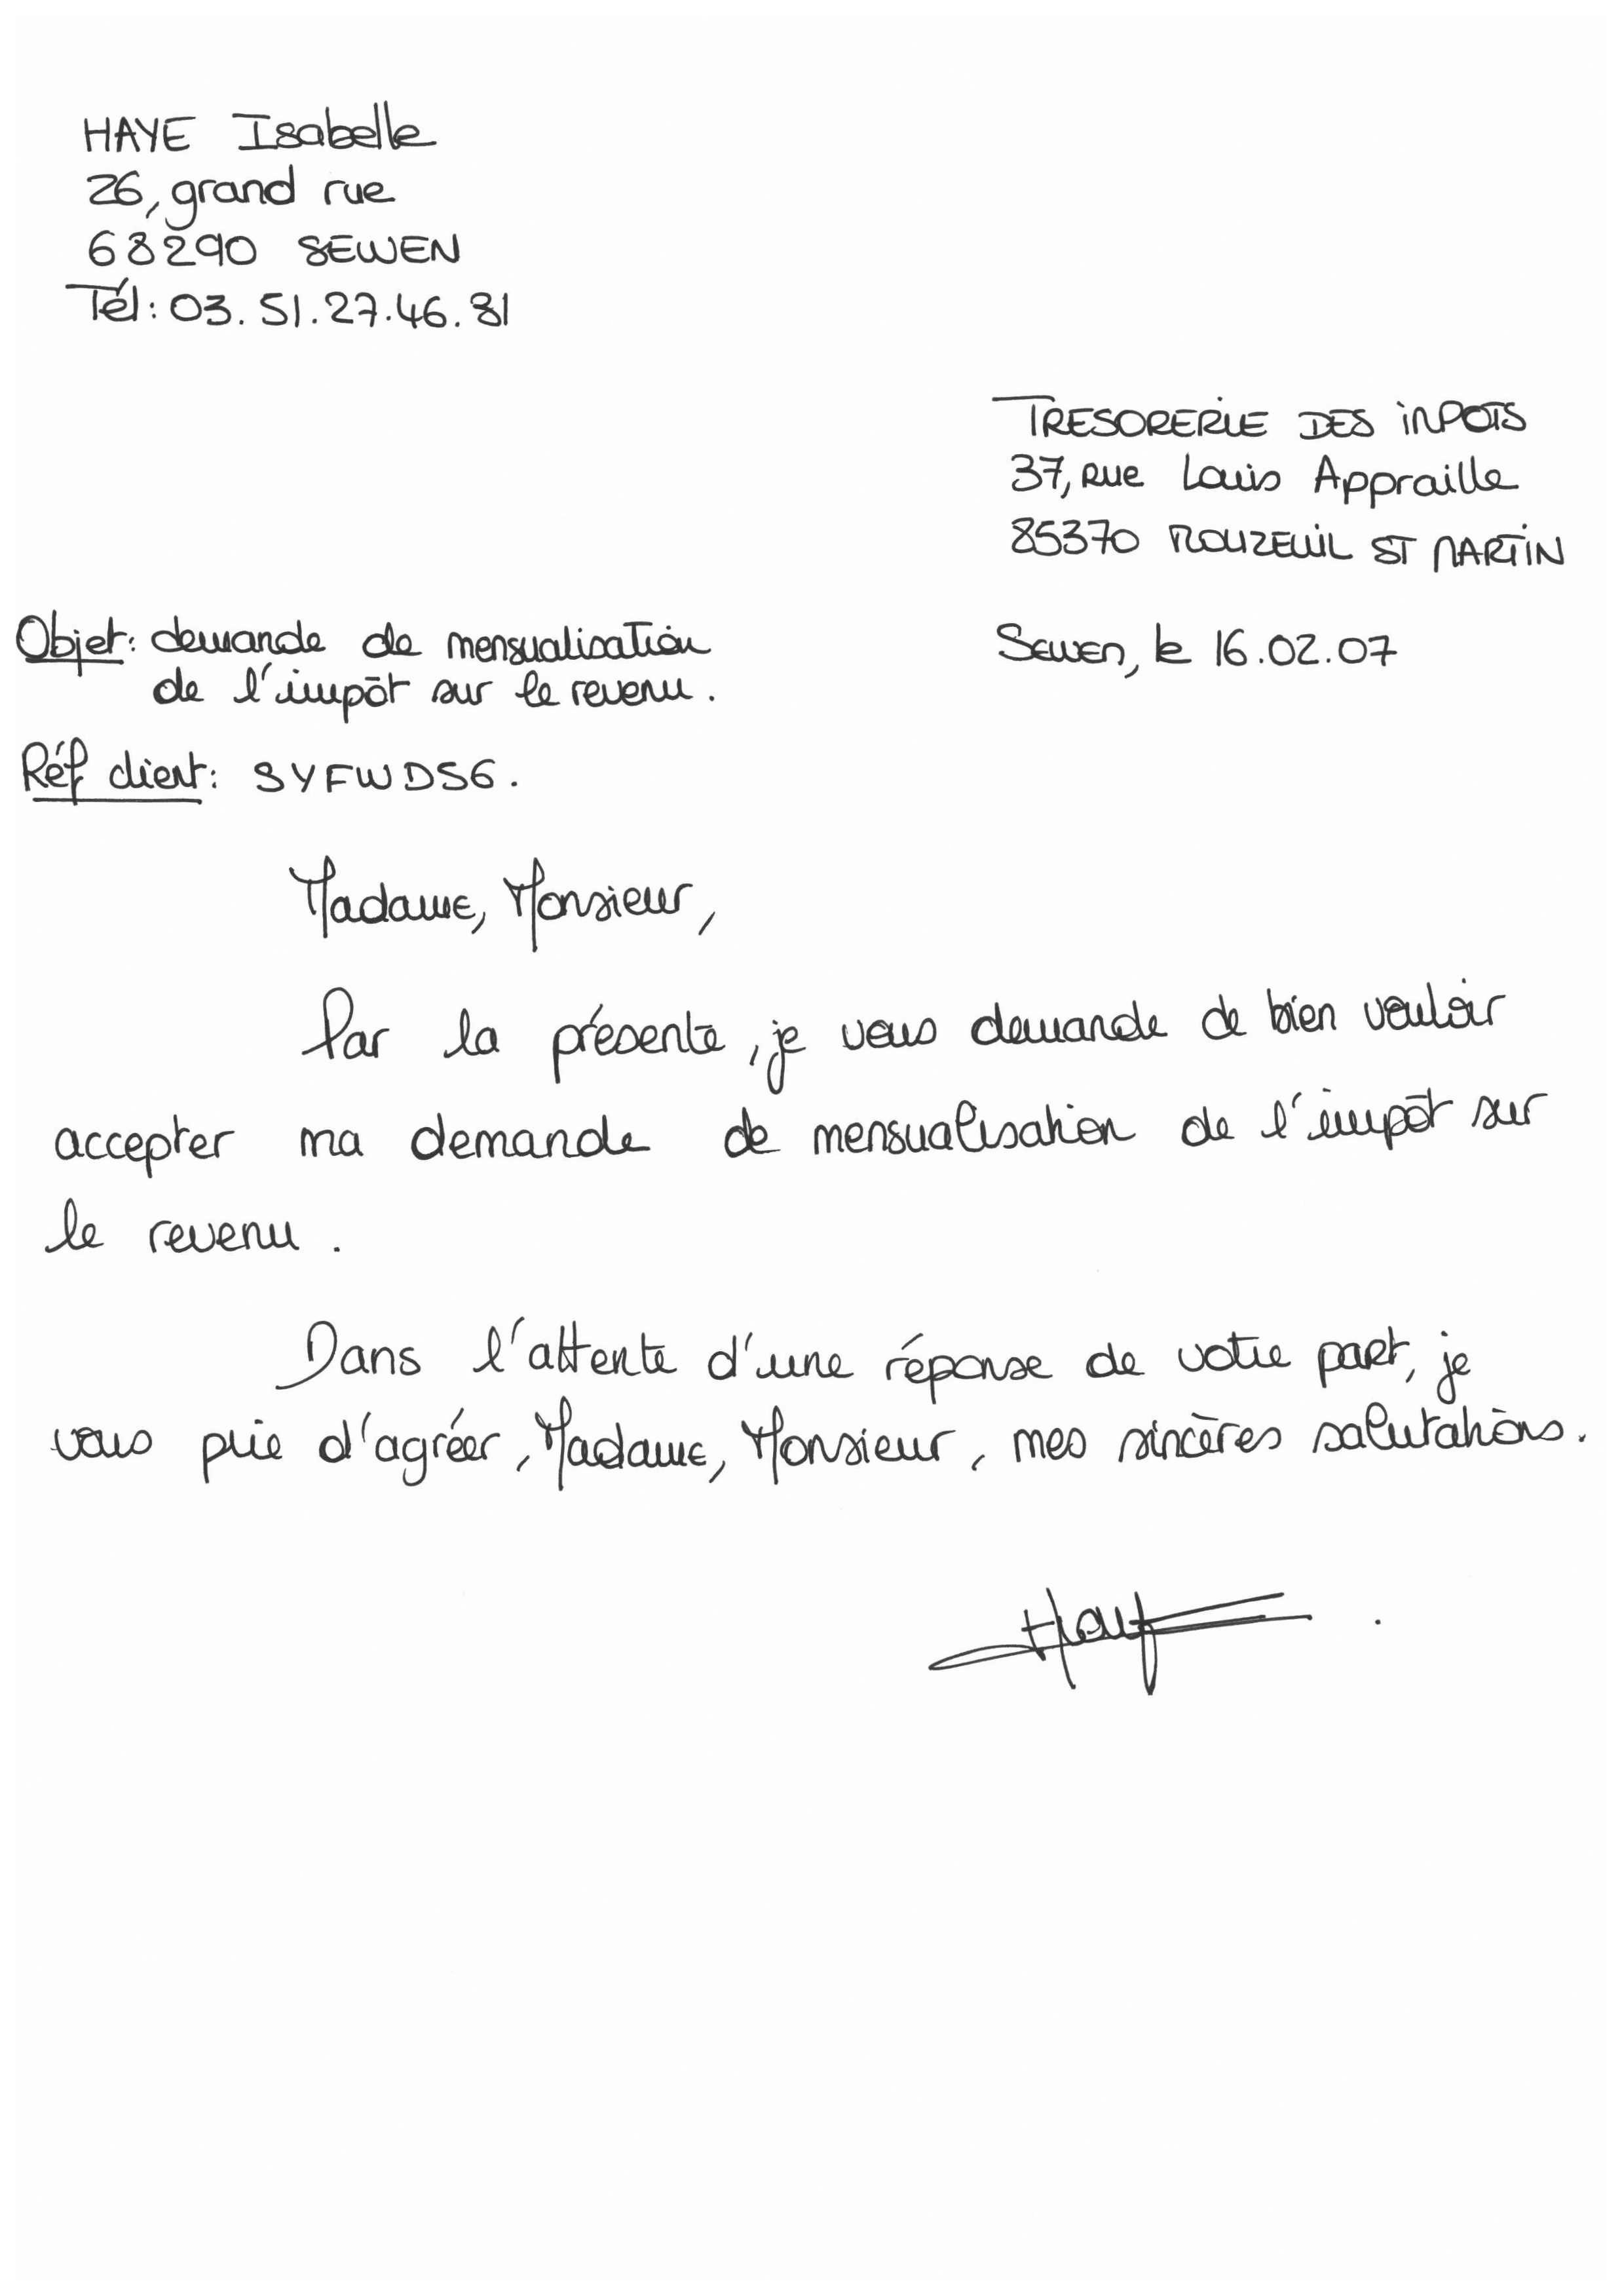 HAYE Isabelle
26, grand rue
68290 SEWEN
Tél: 03.51.27.46.81
TRESORERIE DES IMPOTS
37, Rue Louis Appraille
85370 MOUZEUIL ST MARTIN
Objet: demande de mensualisation
de l'impôt sur le revenu.
Sewen, le 16.02.07
Réf client: SYFWDS6.
Madame, Monsieur,
Par la présente, je vous demande de bien vouloir
accepter ma demande de mensualisation de l'impôt sur
le revenu.
Dans l'attente d'une réponse de votre part, je
vous prie d'agréer, Madame, Monsieur, mes sincères salutations.